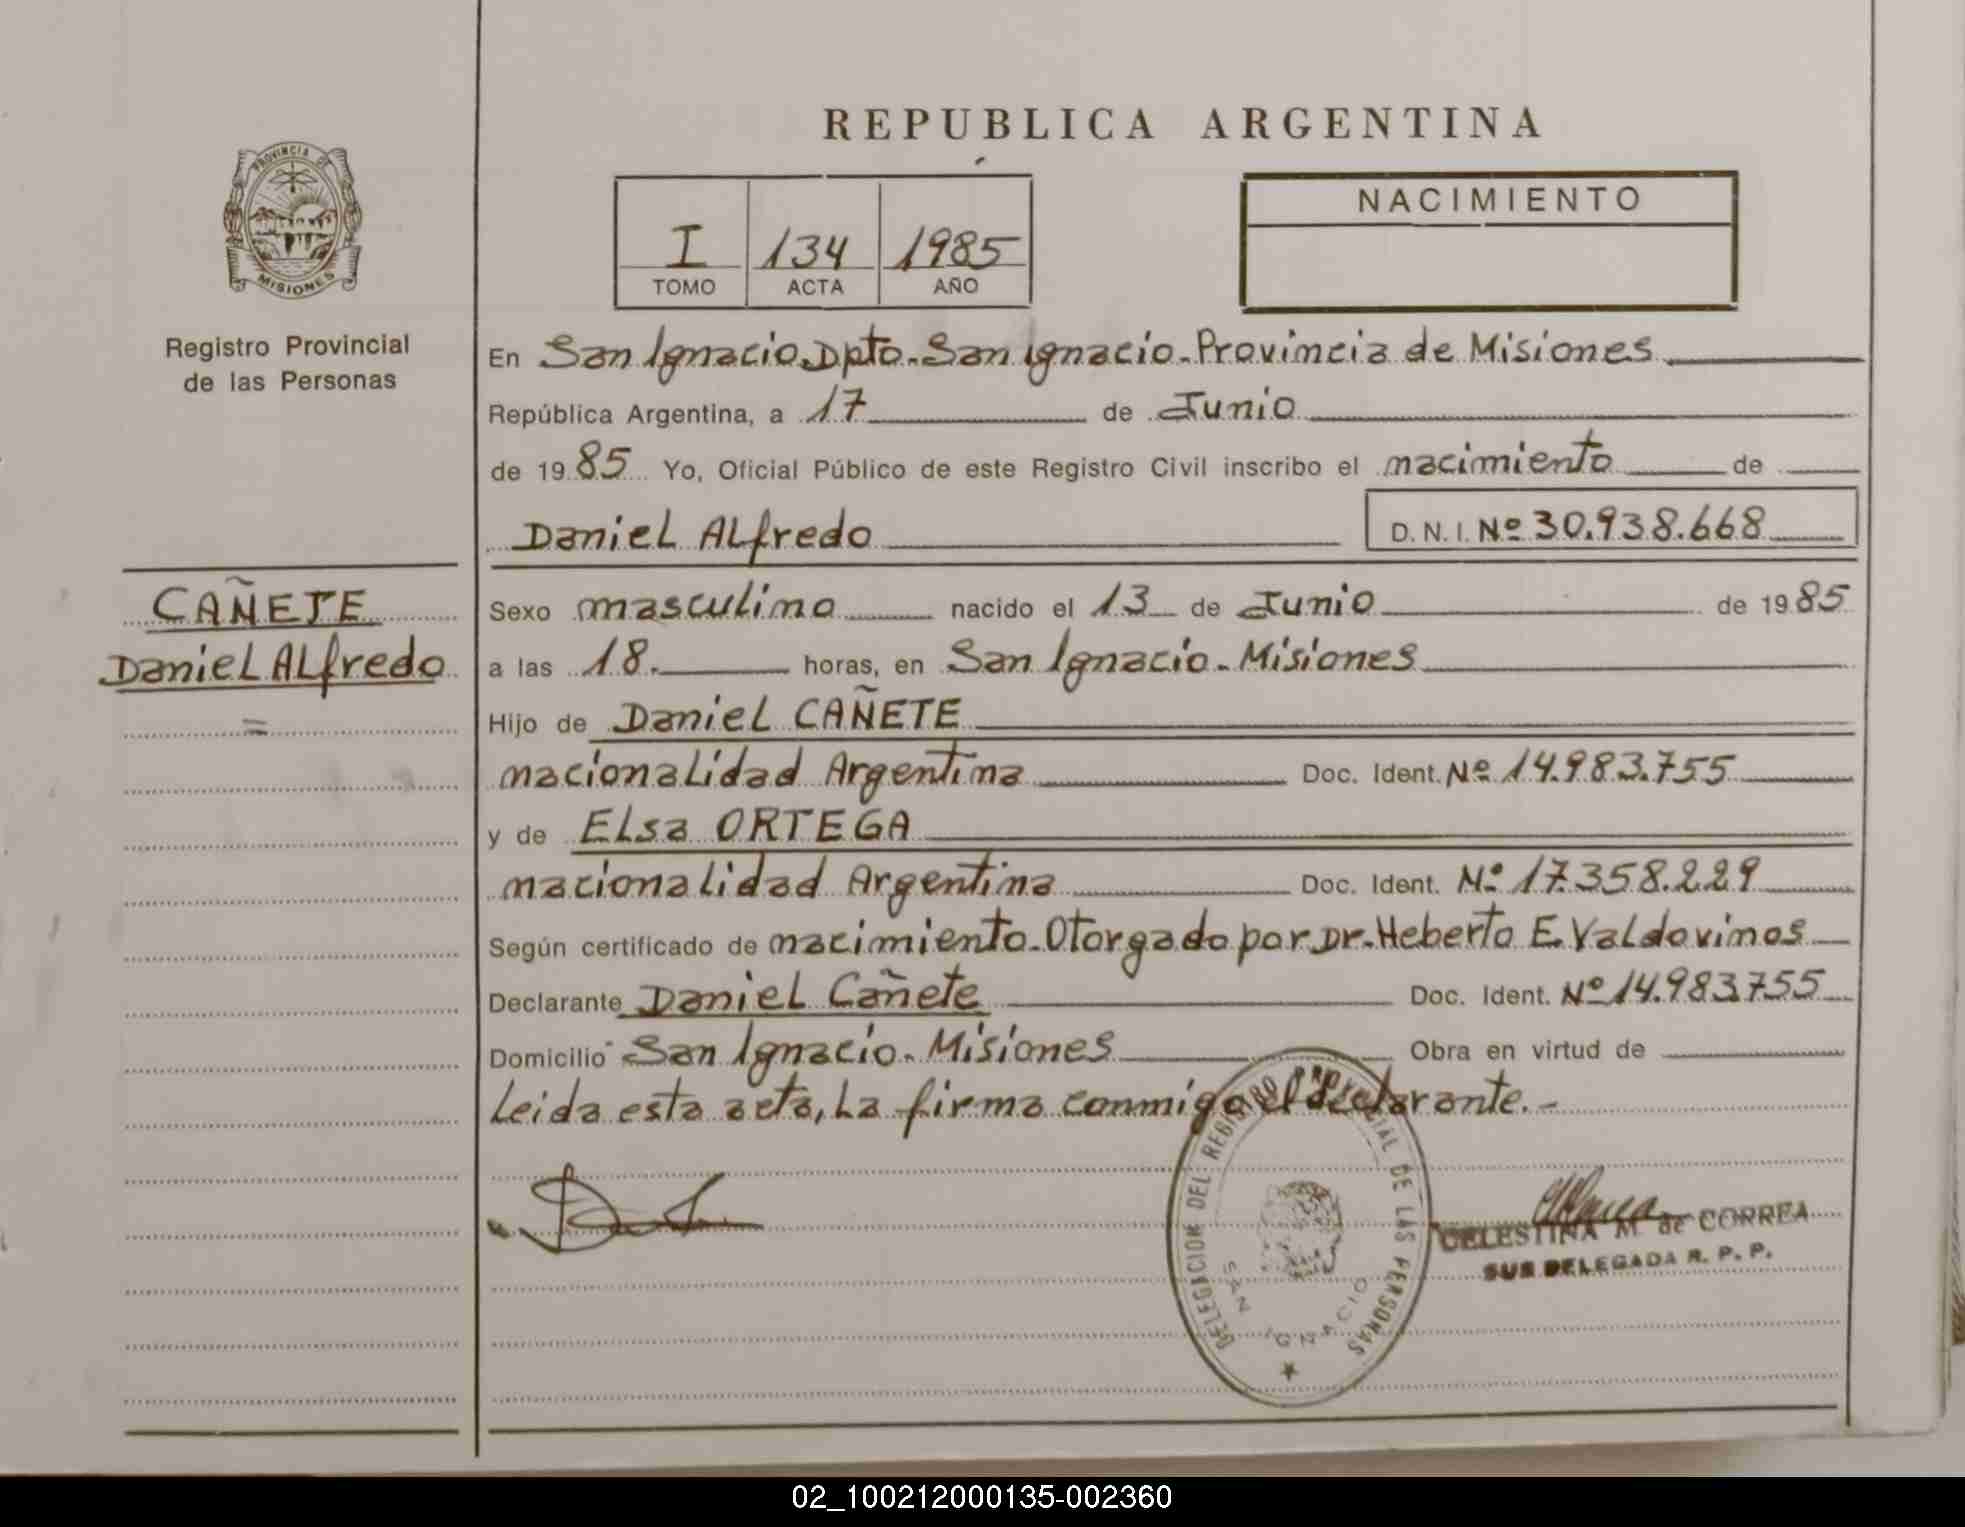 REPUBLICA ARGENTINA
PROVINCIA DE
MISIONES
Registro Provincial
de las Personas
I 134 1985
TOMO ACTA AÑO
NACIMIENTO
En San Ignacio. Dpto. San ignacio. Provincia de Misiones
República Argentina, a 17 de Junio
de 1985 Yo, Oficial Público de este Registro Civil inscribo el nacimiento de
Daniel Alfredo D.N.I. Nº 30.938.668
CAÑETE
Daniel Alfredo
Sexo masculino nacido el 13 de Junio de 1985
a las 18. horas, en San Ignacio. Misiones
Hijo de Daniel CAÑETE
nacionalidad Argentina Doc. Ident. Nº 14.983.755
y de Elsa ORTEGA
nacionalidad Argentina Doc. Ident. Nº 17.358.229
Según certificado de nacimiento. Otorgado por Dr. Heberto E. Valdovinos
Declarante Daniel Cañete Doc. Ident. Nº 14.983.755
Domicilio San Ignacio. Misiones Obra en virtud de
Leida esta acta, La firma conmigo el declarante.-
DELEGACION DEL REGISTRO PROVINCIAL DE LAS PERSONAS
SAN IGNACIO
CELESTINA M. de CORREA
SUB DELEGADA R. P. P.
02_100212000135-002360